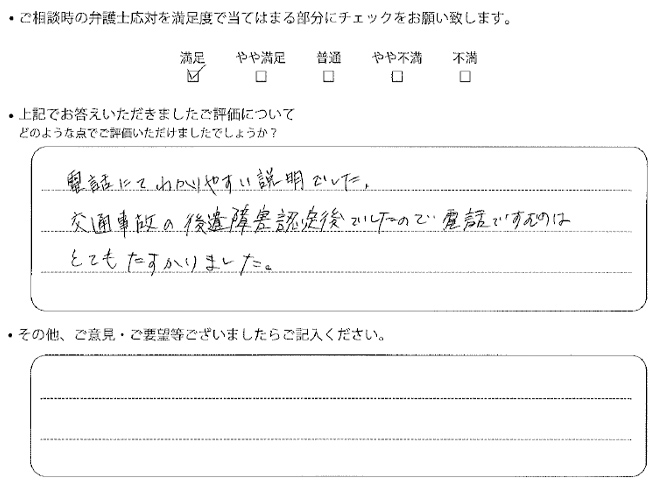 ・ご相談時の弁護士応対を満足度で当てはまる部分にチェックをお願い致します。
満足 やや満足 普通 やや不満 不満
☑ □ □ □ □
・上記でお答えいただきましたご評価について
どのような点でご評価いただけましたでしょうか？
電話にてわかりやすい説明でした。
交通事故の後遺障害認定後でしたので電話ですむのは
とてもたすかりました。
・その他、ご意見・ご要望等ございましたらご記入ください。